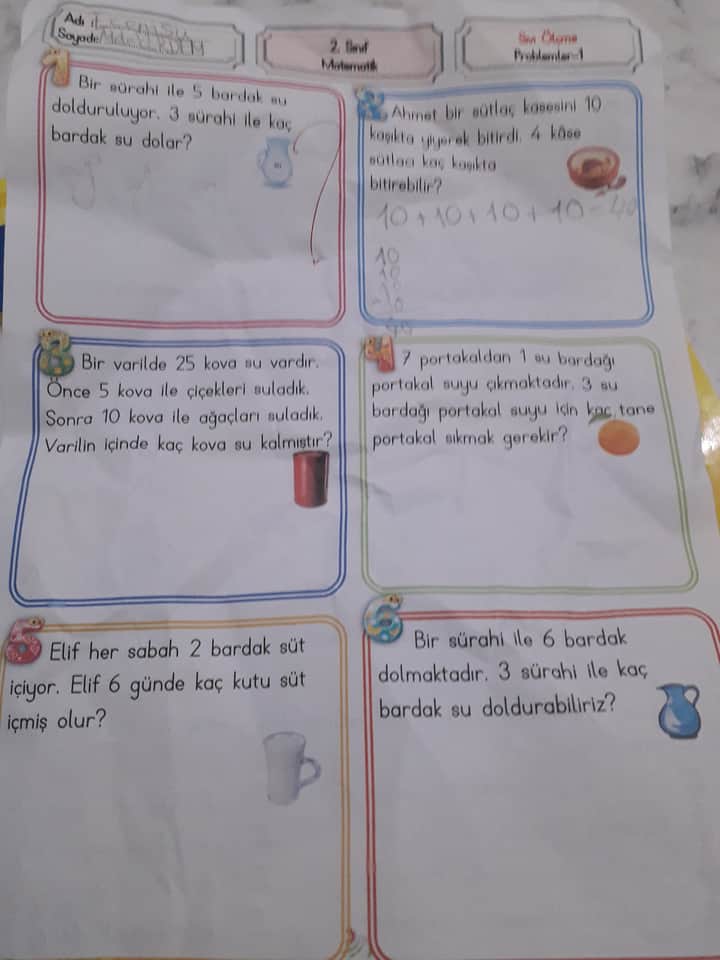 Adı
Soyadı
2. Sınıf
Matematik
Sıvı Ölçme
Problemler-1
1
Bir sürahi ile 5 bardak su
dolduruluyor. 3 sürahi ile kaç
bardak su dolar?
2
Ahmet bir sütlaç kasesini 10
kaşıkta yiyerek bitirdi. 4 kâse
sütlacı kaç kaşıkta
bitirebilir?
10+10+10+10=40
10
10
10
10
40
3
Bir varilde 25 kova su vardır.
Önce 5 kova ile çiçekleri suladık.
Sonra 10 kova ile ağaçları suladık.
Varilin içinde kaç kova su kalmıştır?
4
7 portakaldan 1 su bardağı
portakal suyu çıkmaktadır. 3 su
bardağı portakal suyu için kaç tane
portakal sıkmak gerekir?
5
Elif her sabah 2 bardak süt
içiyor. Elif 6 günde kaç kutu süt
içmiş olur?
6
Bir sürahi ile 6 bardak
dolmaktadır. 3 sürahi ile kaç
bardak su doldurabiliriz?